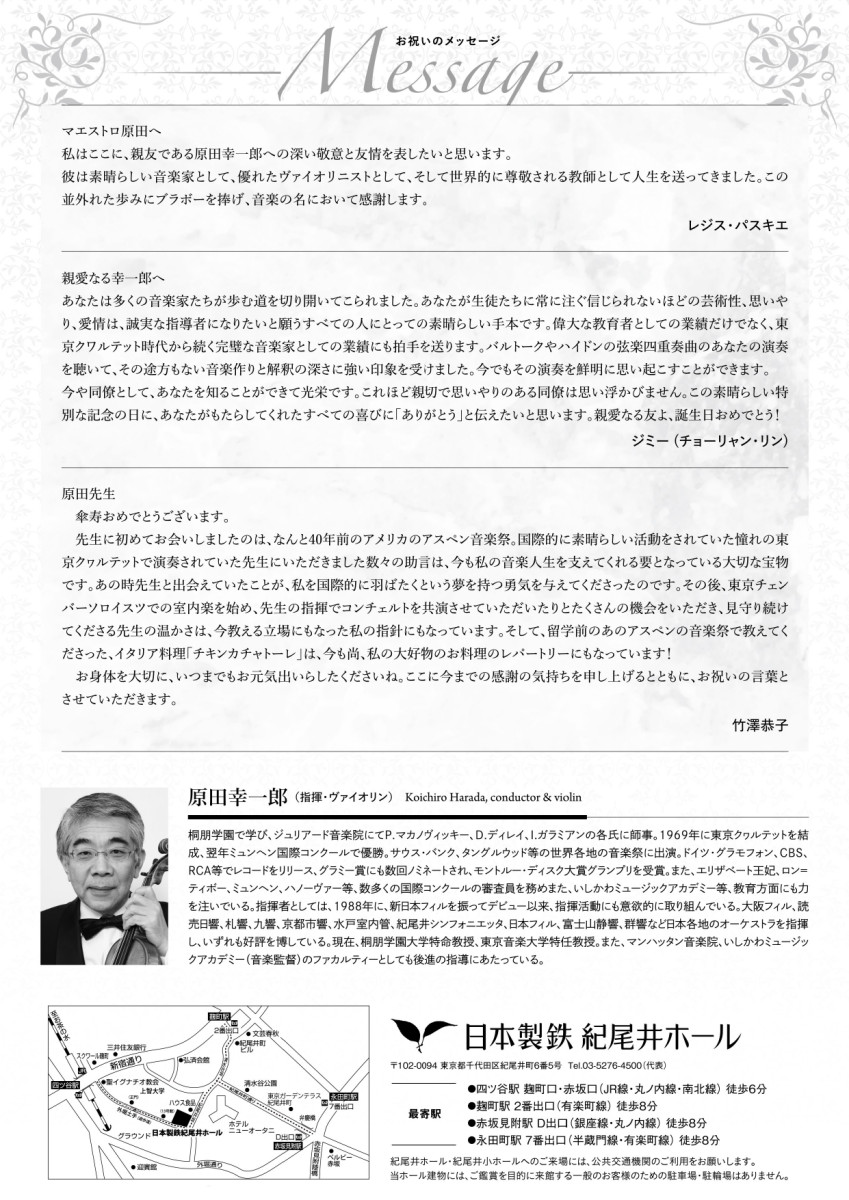 お祝いのメッセージ
Message
マエストロ原田へ
私はここに、親友である原田幸一郎への深い敬意と友情を表したいと思います。
彼は素晴らしい音楽家として、優れたヴァイオリニストとして、そして世界的に尊敬される教師として人生を送ってきました。この
並外れた歩みにブラボーを捧げ、音楽の名において感謝します。
レジス・パスキエ
親愛なる幸一郎へ
あなたは多くの音楽家たちが歩む道を切り開いてこられました。あなたが生徒たちに常に注ぐ信じられないほどの芸術性、思いや
り、愛情は、誠実な指導者になりたいと願うすべての人にとっての素晴らしい手本です。偉大な教育者としての業績だけでなく、東
京クヮルテット時代から続く完璧な音楽家としての業績にも拍手を送ります。バルトークやハイドンの弦楽四重奏曲のあなたの演奏
を聴いて、その途方もない音楽作りと解釈の深さに強い印象を受けました。今でもその演奏を鮮明に思い起こすことができます。
今や同僚として、あなたを知ることができて光栄です。これほど親切で思いやりのある同僚は思い浮かびません。この素晴らしい特
別な記念の日に、あなたがもたらしてくれたすべての喜びに「ありがとう」と伝えたいと思います。親愛なる友よ、誕生日おめでとう!
ジミー(チョーリャン・リン)
原田先生
傘寿おめでとうございます。
先生に初めてお会いしましたのは、なんと40年前のアメリカのアスペン音楽祭。国際的に素晴らしい活動をされていた憧れの東
京クヮルテットで演奏されていた先生にいただきました数々の助言は、今も私の音楽人生を支えてくれる要となっている大切な宝物
です。あの時先生と出会えていたことが、私を国際的に羽ばたくという夢を持つ勇気を与えてくださったのです。その後、東京チェン
バーソロイスツでの室内楽を始め、先生の指揮でコンチェルトを共演させていただいたりとたくさんの機会をいただき、見守り続け
てくださる先生の温かさは、今教える立場にもなった私の指針にもなっています。そして、留学前のあのアスペンの音楽祭で教えてく
ださった、イタリア料理「チキンカチャトーレ」は、今も尚、私の大好物のお料理のレパートリーにもなっています!
お身体を大切に、いつまでもお元気出いらしたくださいね。ここに今までの感謝の気持ちを申し上げるとともに、お祝いの言葉と
させていただきます。
竹澤恭子
原田幸一郎(指揮・ヴァイオリン) Koichiro Harada, conductor & violin
桐朋学園で学び、ジュリアード音楽院にてP.マカノヴィッキー、D.ディレイ、I.ガラミアンの各氏に師事。1969年に東京クヮルテットを結
成、翌年ミュンヘン国際コンクールで優勝。サウス・バンク、タングルウッド等の世界各地の音楽祭に出演。ドイツ・グラモフォン、CBS、
RCA等でレコードをリリース、グラミー賞にも数回ノミネートされ、モントルー・ディスク大賞グランプリを受賞。また、エリザベート王妃、ロン=
ティボー、ミュンヘン、ハノーヴァー等、数多くの国際コンクールの審査員を務めまた、いしかわミュージックアカデミー等、教育方面にも力
を注いでいる。指揮者としては、1988年に、新日本フィルを振ってデビュー以来、指揮活動にも意欲的に取り組んでいる。大阪フィル、読
売日響、札響、九響、京都市響、水戸室内管、紀尾井シンフォニエッタ、日本フィル、富士山静響、群響など日本各地のオーケストラを指揮
し、いずれも好評を博している。現在、桐朋学園大学特命教授、東京音楽大学特任教授。また、マンハッタン音楽院、いしかわミュージッ
クアカデミー(音楽監督)のファカルティーとしても後進の指導にあたっている。
麹町駅
2番出口
文芸春秋
紀尾井町
ビル
三井住友銀行
スクワール麹町
新宿通り
弘済会館
四ツ谷駅
聖イグナチオ教会
上智大学
清水谷公園
紀尾井町通り
東京ガーデンテラス
紀尾井町
永田町駅
7番出口
ハウス食品
弁慶橋
日本製鉄紀尾井ホール
グラウンド
ホテル
ニューオータニ
D出口
赤坂見附駅
赤坂見附陸橋
迎賓館
外堀通り
ベルビー
赤坂
日本製鉄 紀尾井ホール
〒102-0094 東京都千代田区紀尾井町6番5号 Tel.03-5276-4500(代表)
最寄駅
●四ツ谷駅 麹町口・赤坂口(JR線・丸ノ内線・南北線) 徒歩6分
●麹町駅 2番出口(有楽町線) 徒歩8分
●赤坂見附駅 D出口(銀座線・丸ノ内線) 徒歩8分
●永田町駅 7番出口(半蔵門線・有楽町線) 徒歩8分
紀尾井ホール・紀尾井小ホールへのご来場には、公共交通機関のご利用をお願いします。
当ホール建物には、ご鑑賞を目的に来館する一般のお客様のための駐車場・駐輪場はありません。